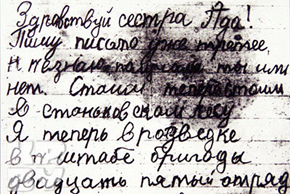 Здравствуй сестра Ада!
Пишу письмо уже третее,
и незнаю ты или
нет. Стоим теперь стоим
в станьковском лесу
Я теперь в розведке
в штабе бригоды
двадцать пятый отряд